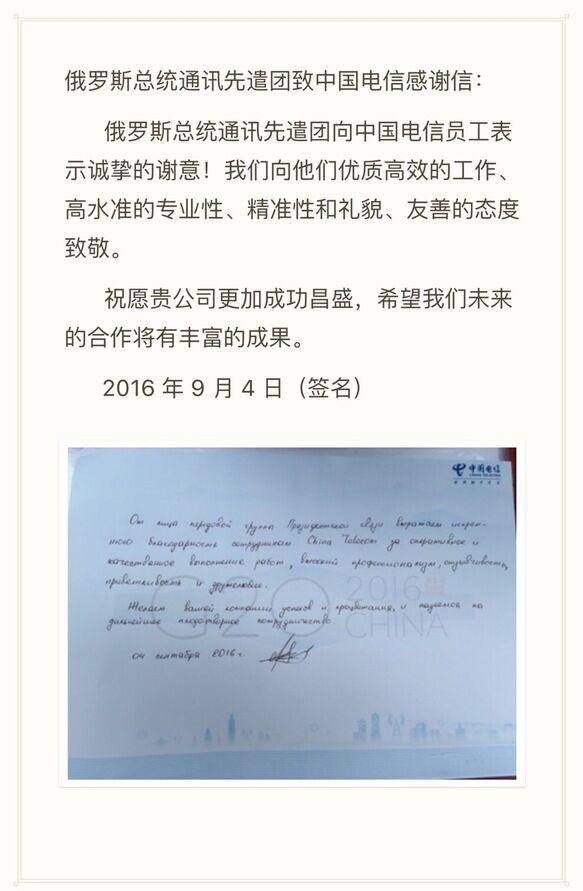 俄罗斯总统通讯先遣团致中国电信感谢信：
俄罗斯总统通讯先遣团向中国电信员工表
示诚挚的谢意！我们向他们优质高效的工作、
高水准的专业性、精准性和礼貌、友善的态度
致敬。
祝愿贵公司更加成功昌盛，希望我们未来
的合作将有丰富的成果。
2016 年 9 月 4 日（签名）
中国电信
CHINA TELECOM
От лица передовой группы Президентской связи выражаем искрен-
нюю благодарность сотрудникам China Telecom за оперативное и
качественное выполнение работ, высокий профессионализм, отзывчивость,
приветливость и дружелюбие.
Желаем вашей компании успехов и процветания, и надеемся на
дальнейшее плодотворное сотрудничество.
G20 2016
CHINA
04 сентября 2016 г.